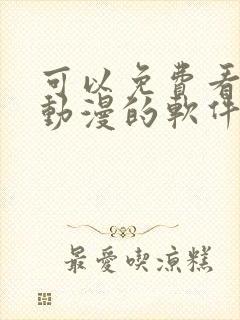 可以免費看
動漫的軟件
最愛喫涼糕